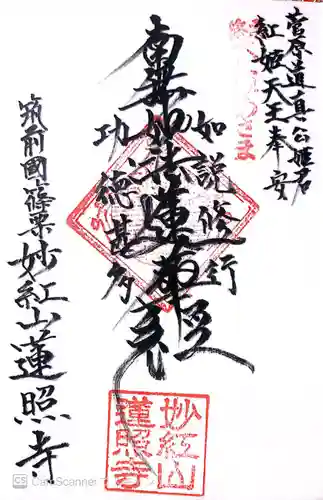 菅原道真公姫君
紅姫天王奉安
べにひめさま
如説修行
南無妙法蓮華経
功徳甚多
筑前國篠栗妙紅山蓮照寺
妙紅山
蓮照寺
CS CamScanner